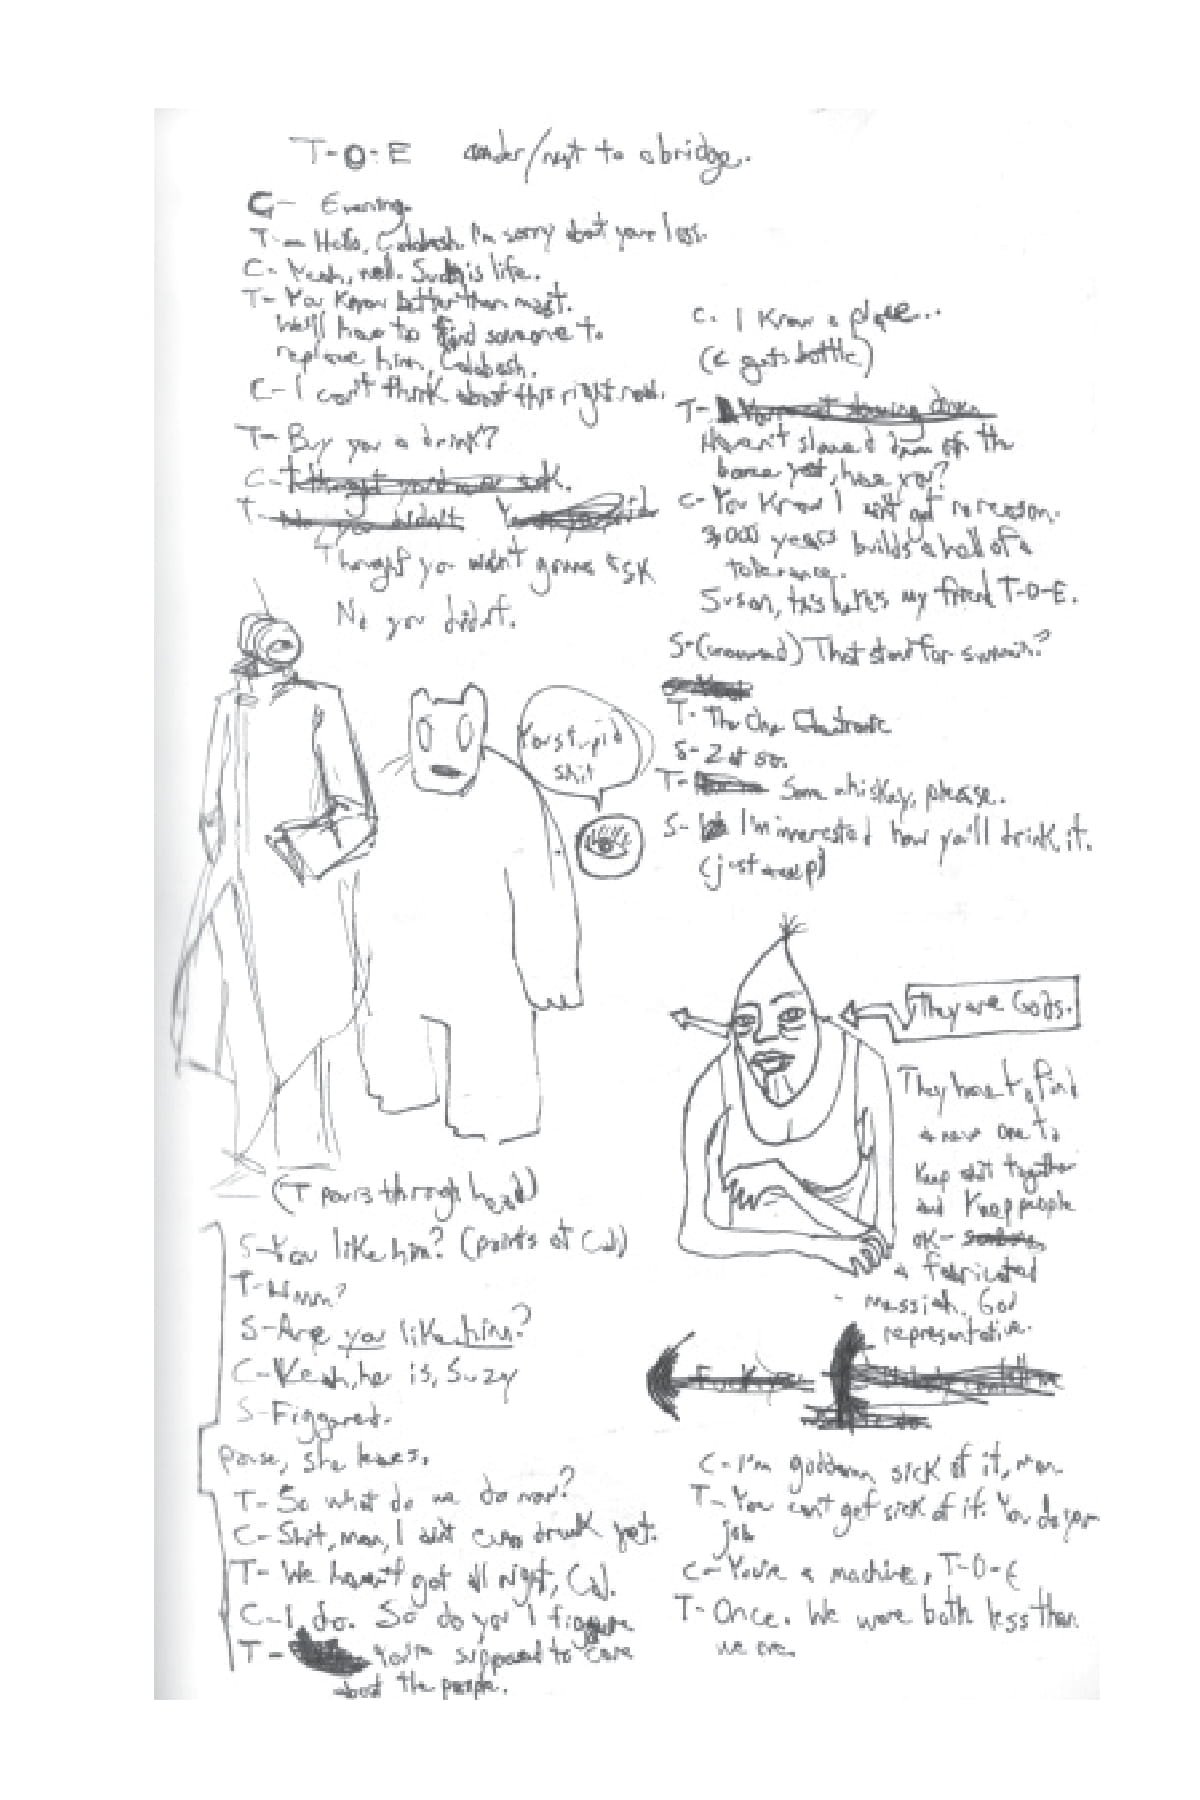 T-O-E under/next to a bridge.
C- Evening.
T- Hello, Calabash. I'm sorry about your loss.
C- Yeah, well. Such is life.
T- You know better than most.
We'll have to find someone to
replace him, Calabash.
C- I can't think about this right now.
T- Buy you a drink?
C- I thought you'd never ask.
T- No you didn't
Thought you wasn't gonna ask
No you didn't.
You stupid
shit
(T pours through head)
S-You like him? (points at Cal)
T-Hmm?
S-Are you like him?
C-Yeah, he is, Suzy
S-Figgered.
pause, she leaves.
T- So what do we do now?
C- Shit, man, I ain't even drunk yet.
T- We haven't got all night, Cal.
C-I do. So do you I figgure
T- You're supposed to care
about the people.
C. I know a place...
(C gets bottle)
T- You're not slowing down
Haven't slowed down on the
booze yet, have you?
C- You know I ain't got no reason.
3,000 years builds a hell of a
tolerance.
Susan, this here's my friend T-O-E.
S-(unamused) That stand for sumthin?
T- The One Electronic
S- 2 of em.
T- Some whiskey, please.
S- I'm interested how you'll drink it.
They are Gods.
They have to find
a new one to
keep shit together
and keep people
ok-
a fabricated
- messiah. God
representative.
Fuck you
C- I'm goddamn sick of it, man.
T- You can't get sick of it. You do your
job
C- You're a machine, T-O-E
T- Once. We were both less than
we are.